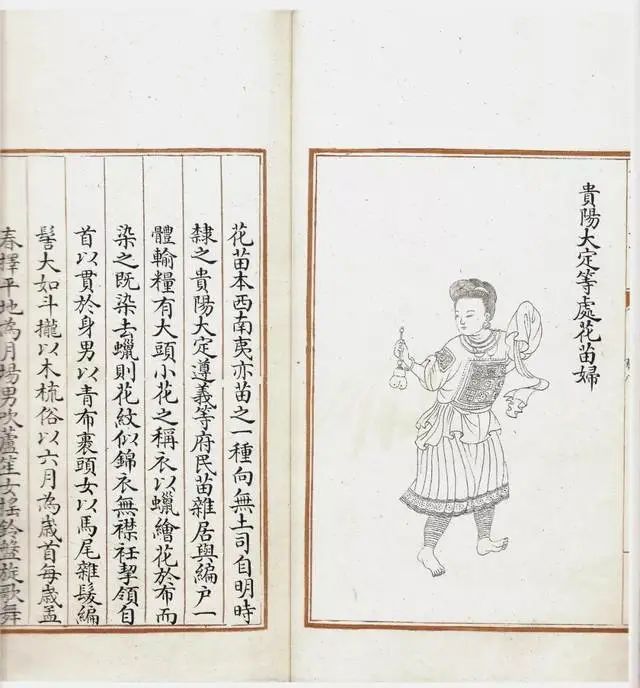 貴陽大定等處花苗婦
花苗本西南夷亦苗之一種向無土司自明時
隸之貴陽大定遵義等府民苗雜居與編戶一
體輸糧有大頭小花之稱衣以蠟繪花於布而
染之既染去蠟則花紋似錦衣無襟衽挈領自
首以貫於身男以青布裹頭女以馬尾雜髮編
髻大如斗攏以木梳俗以六月為歲首每歲孟
春擇平地為月場男吹蘆笙女搖鈴盤旋歌舞